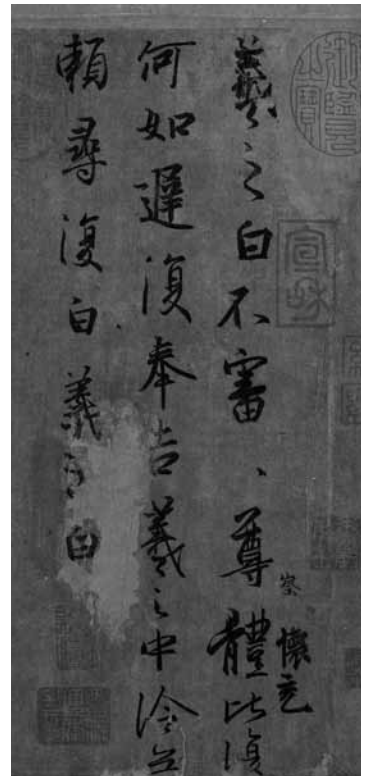 羲之白不審、尊體比復
察 懷充
何如遲復奉告羲之中冷無
賴尋復白羲之白
宣和